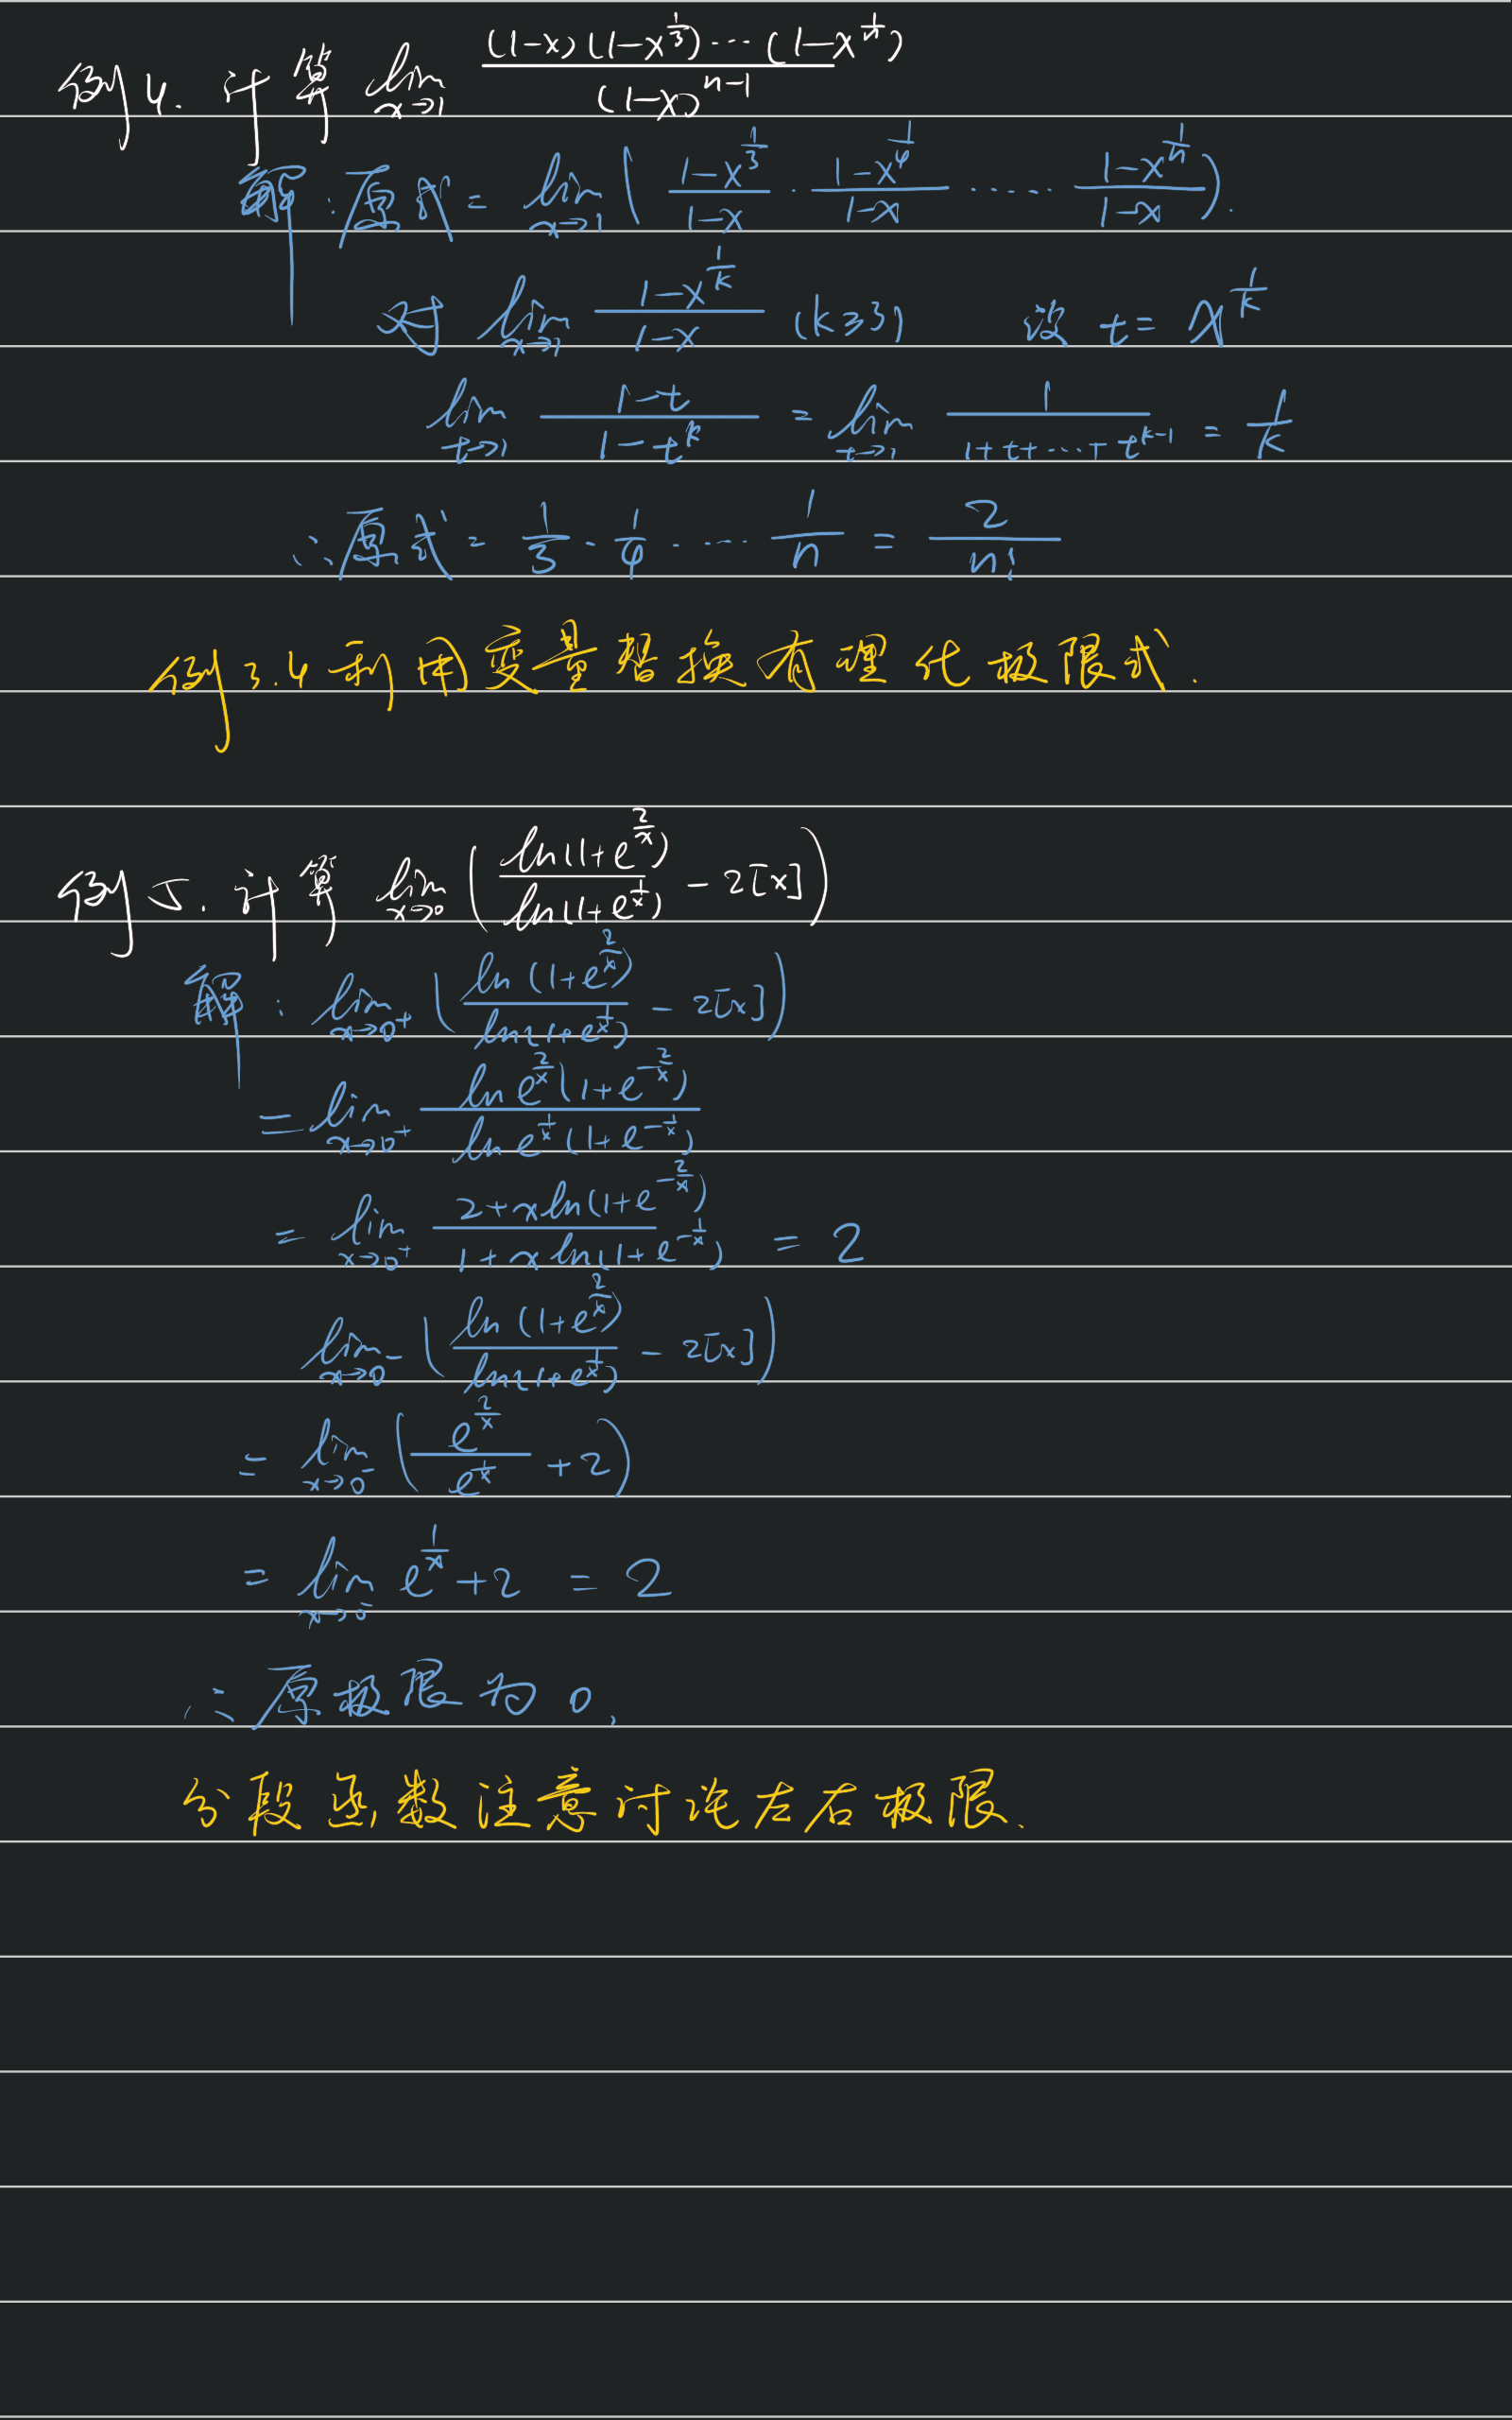 例4. 计算 lim_{x→1} \frac{(1-x)(1-x^{\frac{1}{3}})\cdots(1-x^{\frac{1}{n}})}{(1-x)^{n-1}}
解:原式= lim_{x→1} ( \frac{1-x^{\frac{1}{3}}}{1-x} · \frac{1-x^{\frac{1}{4}}}{1-x} ······ \frac{1-x^{\frac{1}{n}}}{1-x} ).
对 lim_{x→1} \frac{1-x^{\frac{1}{k}}}{1-x} (k≥3) 设 t= x^{\frac{1}{k}}
lim_{t→1} \frac{1-t}{1-t^k} = lim_{t→1} \frac{1}{1+t+···+t^{k-1}} = \frac{1}{k}
∴原式= \frac{1}{3} · \frac{1}{4} ····· \frac{1}{n} = \frac{2}{n!}
例3.4 利用变量替换有理化极限式.
例5. 计算 lim_{x→0} ( \frac{ln(1+e^{\frac{2}{x}})}{ln(1+e^{\frac{1}{x}})} - 2[x] )
解: lim_{x→0^+} ( \frac{ln(1+e^{\frac{2}{x}})}{ln(1+e^{\frac{1}{x}})} - 2[x] )
= lim_{x→0^+} \frac{ln e^{\frac{2}{x}}(1+e^{-\frac{2}{x}})}{ln e^{\frac{1}{x}}(1+e^{-\frac{1}{x}})}
= lim_{x→0^+} \frac{2+x ln(1+e^{-\frac{2}{x}})}{1+x ln(1+e^{-\frac{1}{x}})} = 2
lim_{x→0^-} ( \frac{ln(1+e^{\frac{2}{x}})}{ln(1+e^{\frac{1}{x}})} - 2[x] )
= lim_{x→0^-} ( \frac{e^{\frac{2}{x}}}{e^{\frac{1}{x}}} + 2 )
= lim_{x→0^-} e^{\frac{1}{x}} + 2 = 2
∴原极限为0.
分段函数注意讨论左右极限.